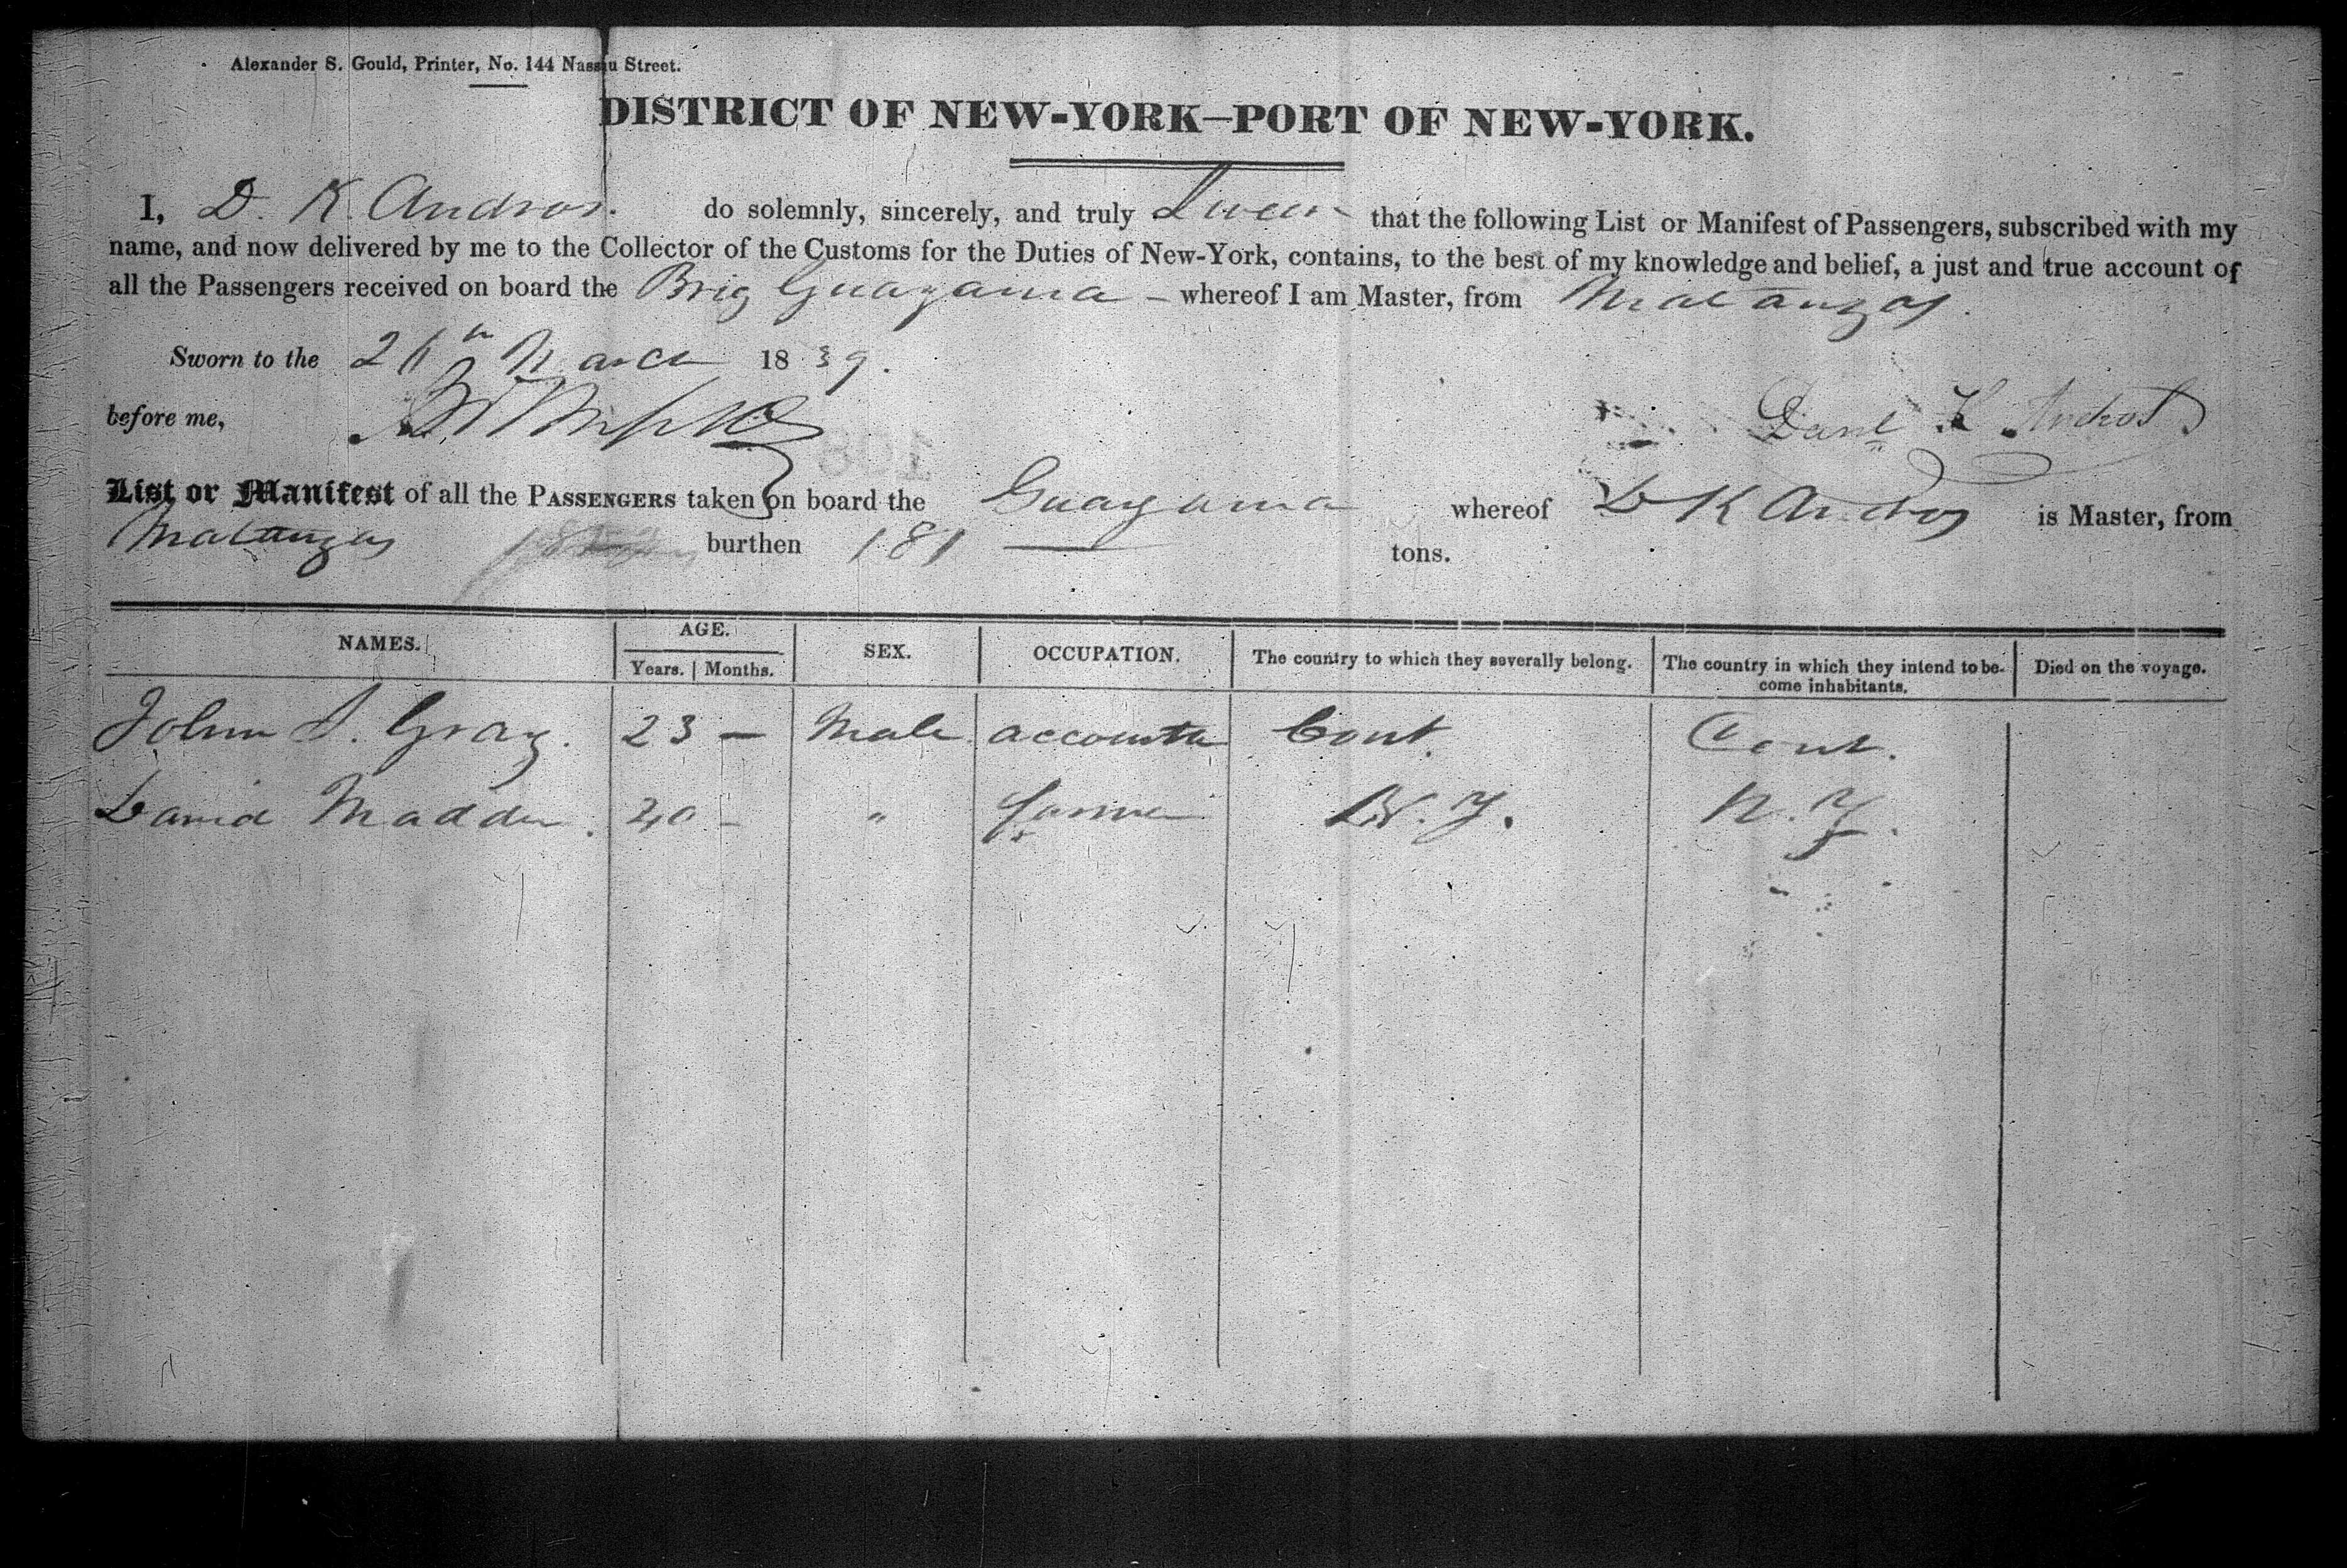 Alexander S. Gould, Printer, No. 144 Nassau Street.
DISTRICT OF NEW-YORK—PORT OF NEW-YORK.
I, D. K. Andros. do solemnly, sincerely, and truly Swear that the following List or Manifest of Passengers, subscribed with my
name, and now delivered by me to the Collector of the Customs for the Duties of New-York, contains, to the best of my knowledge and belief, a just and true account of
all the Passengers received on board the Brig Guayama – whereof I am Master, from Matanzas.
Sworn to the 26th March 1839.
before me,
Danl K Andros
List or Manifest of all the PASSENGERS taken on board the Guayama whereof D K Andros is Master, from
Matanzas burthen 181 tons.
NAMES. AGE. SEX. OCCUPATION. The country to which they severally belong. The country in which they intend to be- Died on the voyage.
Years. | Months. come inhabitants.
John S. Gray. 23 – Male accounta Cont. Cont.
David Madden. 40 – " farmer N. Y. N. Y.